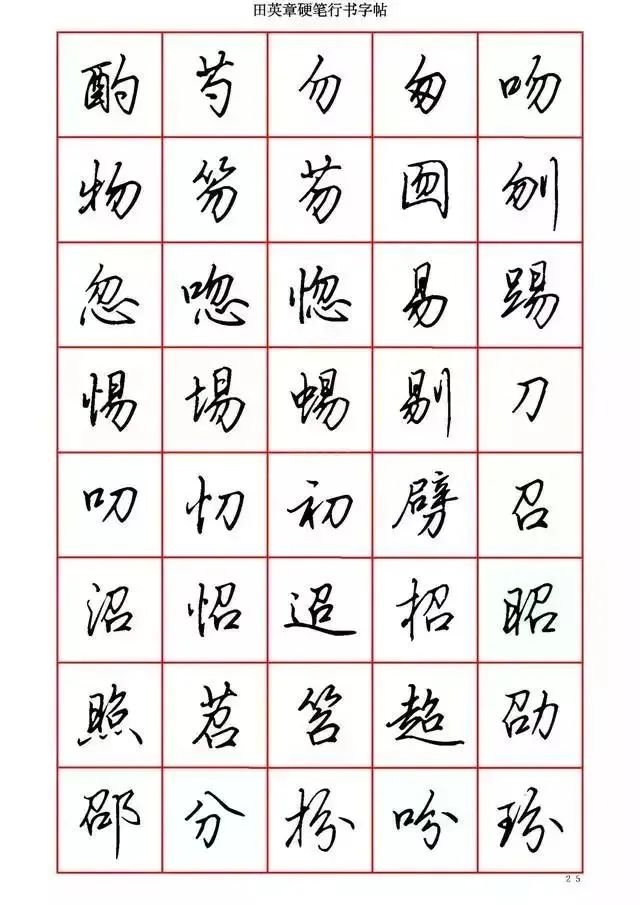 田英章硬笔行书字帖
酌 芍 勿 匆 吻
物 笏 芴 囫 刎
忽 唿 惚 易 踢
惕 埸 蜴 剔 刀
叨 忉 初 劈 召
沼 怊 迢 招 昭
照 苕 笤 超 劭
邵 分 扮 吩 玢
25